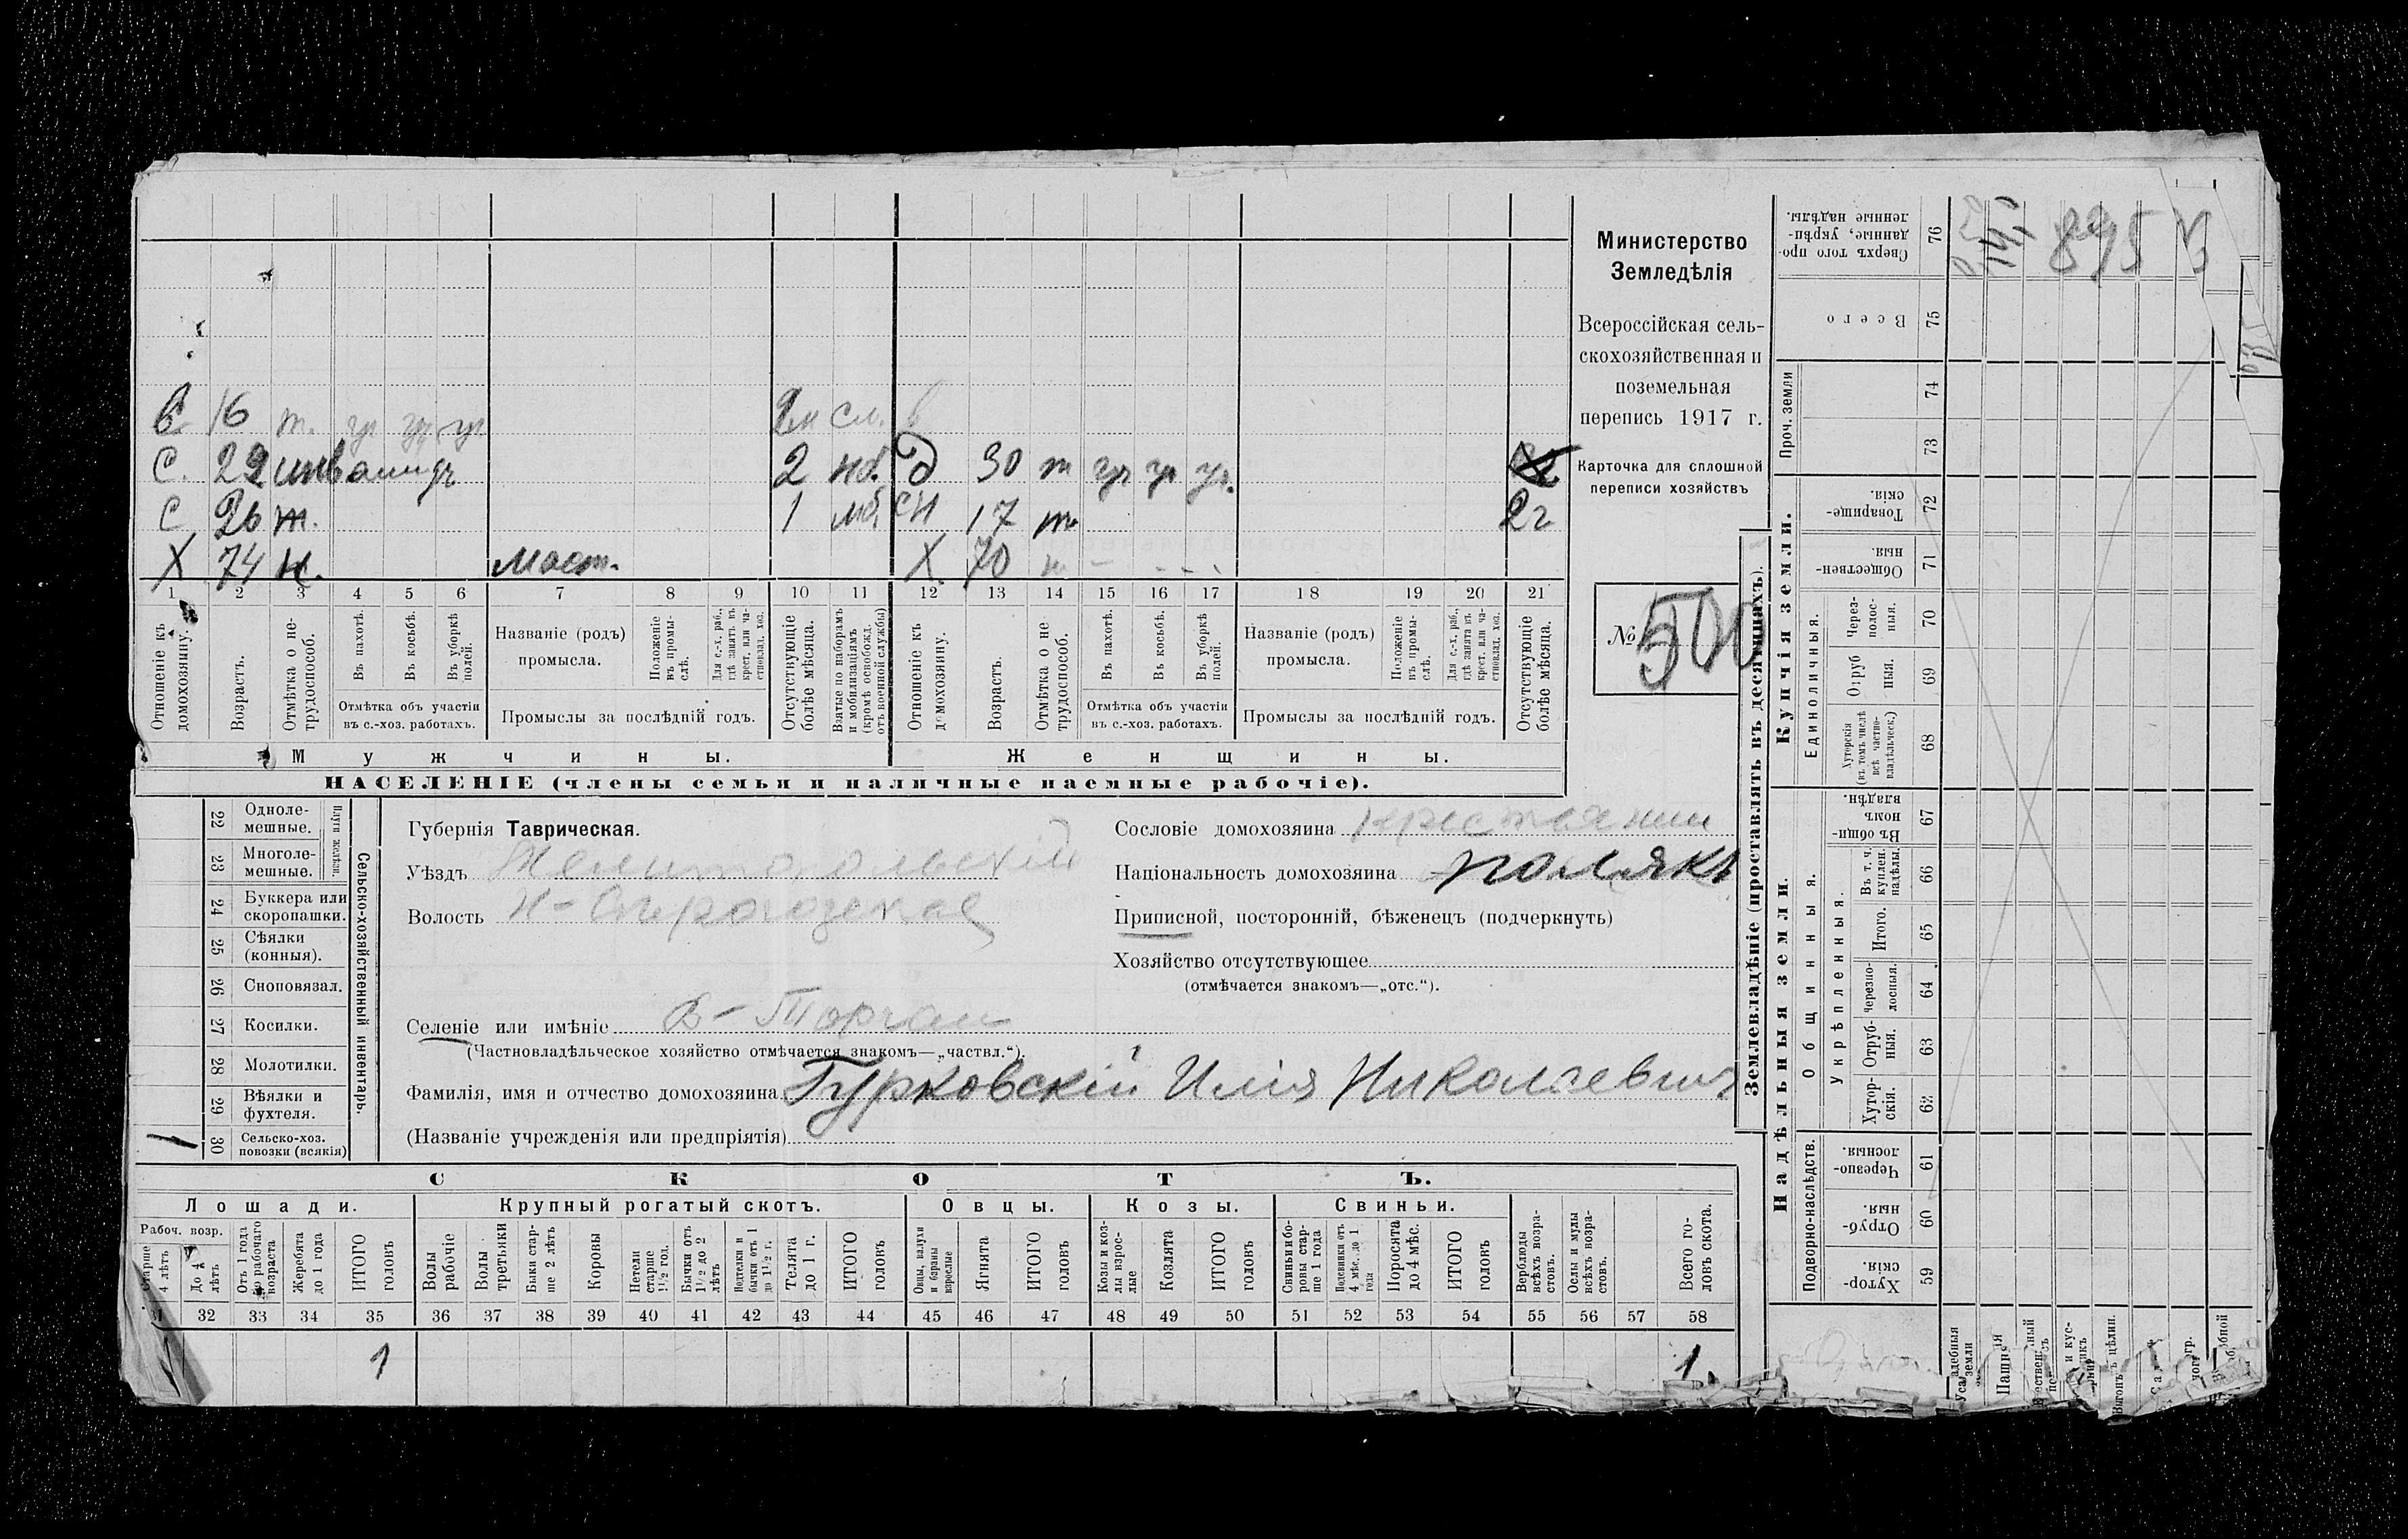 Министерство
Земледѣлія
Всероссійская сель-
скохозяйственная и
поземельная
перепись 1917 г.
Карточка для сплошной
переписи хозяйствъ
№ 500
16 т.
С. 29 инвалидъ 2 Д 30 т
С 26 т. 1 17 т. 2 г
Х 74 н. маст. Х 70 н
1 2 3 4 5 6 7 8 9 10 11 12 13 14 15 16 17 18 19 20 21
Отношеніе къ домохозяину.
Возрастъ.
Отмѣтка о не-трудоспособ.
Въ пахотѣ.
Въ косьбѣ.
Въ уборкѣ полей.
Отмѣтка объ участіи
въ с.-хоз. работахъ.
Названіе (родъ)
промысла.
Положеніе въ промы-слѣ.
Для с.-х. раб., гдѣ занятъ въ крест. или ча-стновлад. хоз.
Промыслы за послѣдній годъ.
Отсутствующіе болѣе мѣсяца.
Взятые по наборамъ и мобилизаціямъ (кромѣ освобожд. отъ военной службы)
Отношеніе къ домохозяину.
Возрастъ.
Отмѣтка о не-трудоспособ.
Въ пахотѣ.
Въ косьбѣ.
Въ уборкѣ полей.
Отмѣтка объ участіи
въ с.-хоз. работахъ.
Названіе (родъ)
промысла.
Положеніе въ промы-слѣ.
Для с.-х. раб., гдѣ занята въ крест. или ча-стновлад. хоз.
Промыслы за послѣдній годъ.
Отсутствующіе болѣе мѣсяца.
Мужчины.
Женщины.
НАСЕЛЕНІЕ (члены семьи и наличные наемные рабочіе).
22 Одноле-мешные.
23 Многоле-мешные.
Плуги желѣзн.
24 Буккера или скоропашки.
25 Сѣялки (конныя).
26 Сноповязал.
27 Косилки.
28 Молотилки.
29 Вѣялки и фухтеля.
1 30 Сельско-хоз. повозки (всякія)
Сельско-хозяйственный инвентарь.
Губернія Таврическая.
Уѣздъ Мелитопольскій
Волость Н-Сѣрогозская
Селеніе или имѣніе В-Торгаи
(Частновладѣльческое хозяйство отмѣчается знакомъ—„частвл.“).
Фамилія, имя и отчество домохозяина Гурковскій Илія Николаевич
(Названіе учрежденія или предпріятія)
Сословіе домохозяина крестьянин
Національность домохозяина полякъ
Приписной, посторонній, бѣженецъ (подчеркнуть)
Хозяйство отсутствующее
(отмѣчается знакомъ—„отс.“).
СКОТЪ.
Лошади.
Крупный рогатый скотъ.
Овцы.
Козы.
Свиньи.
Рабоч. возр.
Старше 4 лѣтъ
До 4 лѣтъ
Отъ 1 года до рабочаго возраста
Жеребята до 1 года
ИТОГО головъ
Волы рабочіе
Волы третьяки
Быки стар-ше 2 лѣтъ
Коровы
Нетели старше 1½ год.
Бычки отъ 1½ до 2 лѣтъ
Подтелки и бычки отъ 1 до 1½ г.
Телята до 1 г.
ИТОГО головъ
Овцы, валухи и бараны взрослые
Ягнята
ИТОГО головъ
Козы и коз-лы взрос-лые
Козлята
ИТОГО головъ
Свиньи и бо-ровы стар-ше 1 года
Подсвинки отъ 4 мѣс. до 1 года
Поросята до 4 мѣс.
ИТОГО головъ
Верблюды всѣхъ возра-стовъ.
Ослы и мулы всѣхъ возра-стовъ.
Всего го-ловъ скота.
31 32 33 34 35 36 37 38 39 40 41 42 43 44 45 46 47 48 49 50 51 52 53 54 55 56 57 58
1 1 1
Землевладѣніе (проставлять въ десятинахъ).
Купчія земли.
Надѣльныя земли.
Сверхъ того про-данные, укрѣп-ленные надѣлы. 76
895
Всего 75
Проч. земли 74
73
Товарище-скія. 72
Обществен-ныя. 71
Единоличныя.
Через-полос-ныя. 70
Отруб-ныя. 69
Хуторскія (въ томъ числѣ всѣ частно-владѣльческ.) 68
Общинныя.
Въ общин-номъ владѣн. 67
Укрѣпленныя.
Въ т. ч. куплен. надѣлы. 66
Итого. 65
Черезпо-лосныя. 64
Отруб-ныя. 63
Хутор-скія. 62
Подворно-наслѣдств.
Черезпо-лосныя. 61
Отруб-ныя. 60
Хутор-скія. 59
Пашня